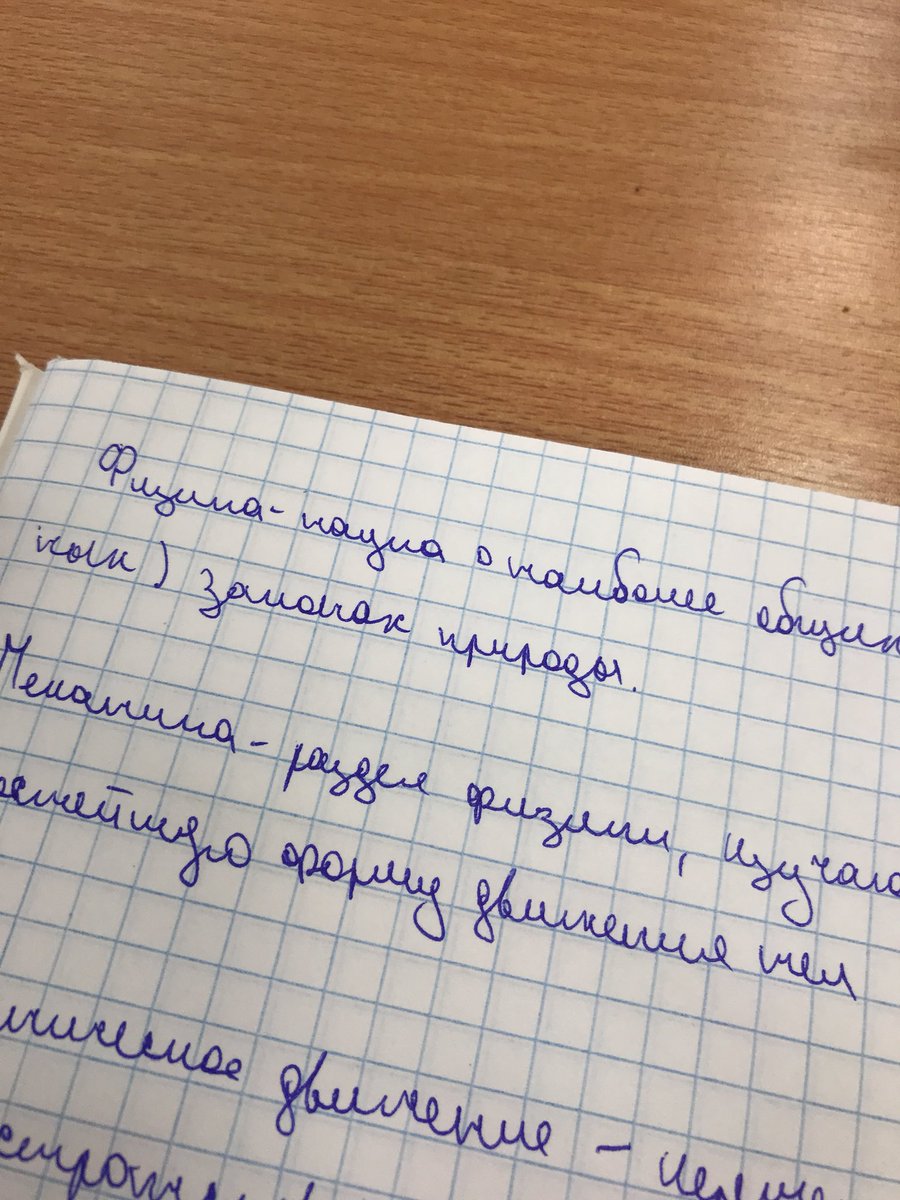 Физика - наука о наиболее общих
ных) законах природы.
Механика - раздел физики, изучаю
ейшую форму движения тел
ническое движение -